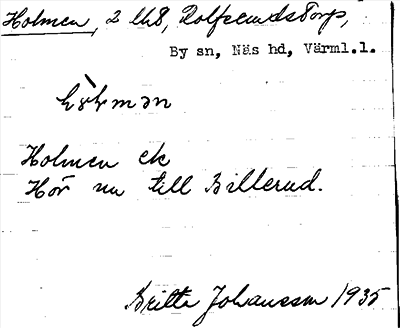 Holmen, 2 lh8, Rolfsemdstorp,
By sn, Näs hd, Värml.l.
Holmen ek
Hör nu till Billerud.
Britta Johansson 1935